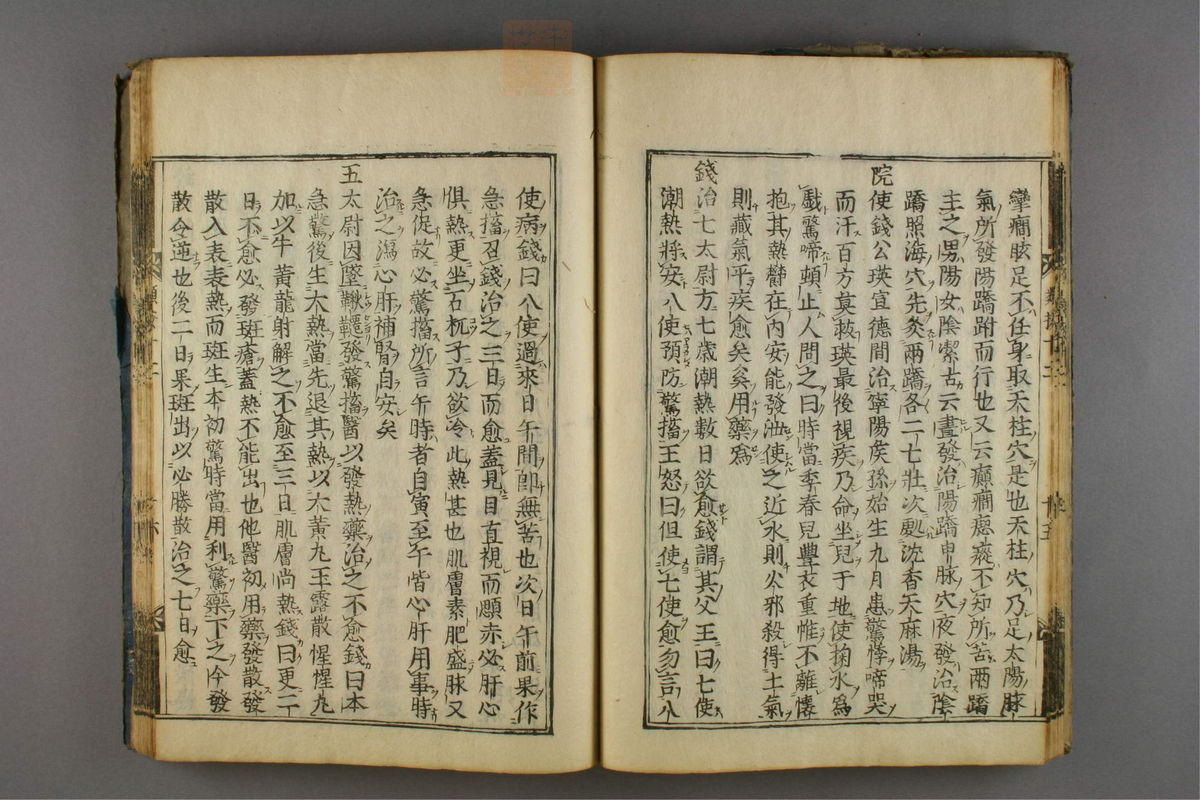 攣癇眩足不任身取天柱穴是也天柱穴乃足太陽脉
氣所發陽蹻跗而行也又云癲癇瘛瘲不知所苦兩蹻
主之男陽女陰潔古云晝發治陽蹻申脉穴夜發治陰
蹻照海穴先灸兩蹻各二七壯次處沈香天麻湯
院使錢公瑛宣德間治寧陽矦孫始生九月患驚悸啼哭
而汗百方莫救瑛最後視疾乃命坐兒于地使掬水爲
戲驚啼頓止人問之曰時當季春兒豐衣重帷不離懷
抱其熱欝在内安能發泄使之近水則火邪殺得土氣
則藏氣平疾愈矣奚用藥爲
錢治七太尉方七歲潮熱數日欲愈錢謂其父王曰七使
潮熱將安八使預防驚搐王怒曰但使七使愈勿言八
使病錢曰八使過來日午間即無苦也次日午前果作
急搐召錢治之三日而愈蓋見目直視而顋赤必肝心
俱熱更坐石杌子乃欲冷此熱甚也肌膚素肥盛脉又
急促故必驚搐所言午時者自寅至午皆心肝用事時
治之瀉心肝補腎自安矣
五太尉因墜鞦韆發驚搐醫以發熱藥治之不愈錢曰本
急驚後生大熱當先退其熱以大黃丸玉露散惺惺丸
加以牛黃龍射解之不愈至三日肌膚尚熱錢曰更二
日不愈必發斑瘡蓋熱不能出也他醫初用藥發散發
散入表表熱而斑生本初驚時當用利驚藥下之今發
散令逆也後二日果斑出以必勝散治之七日愈